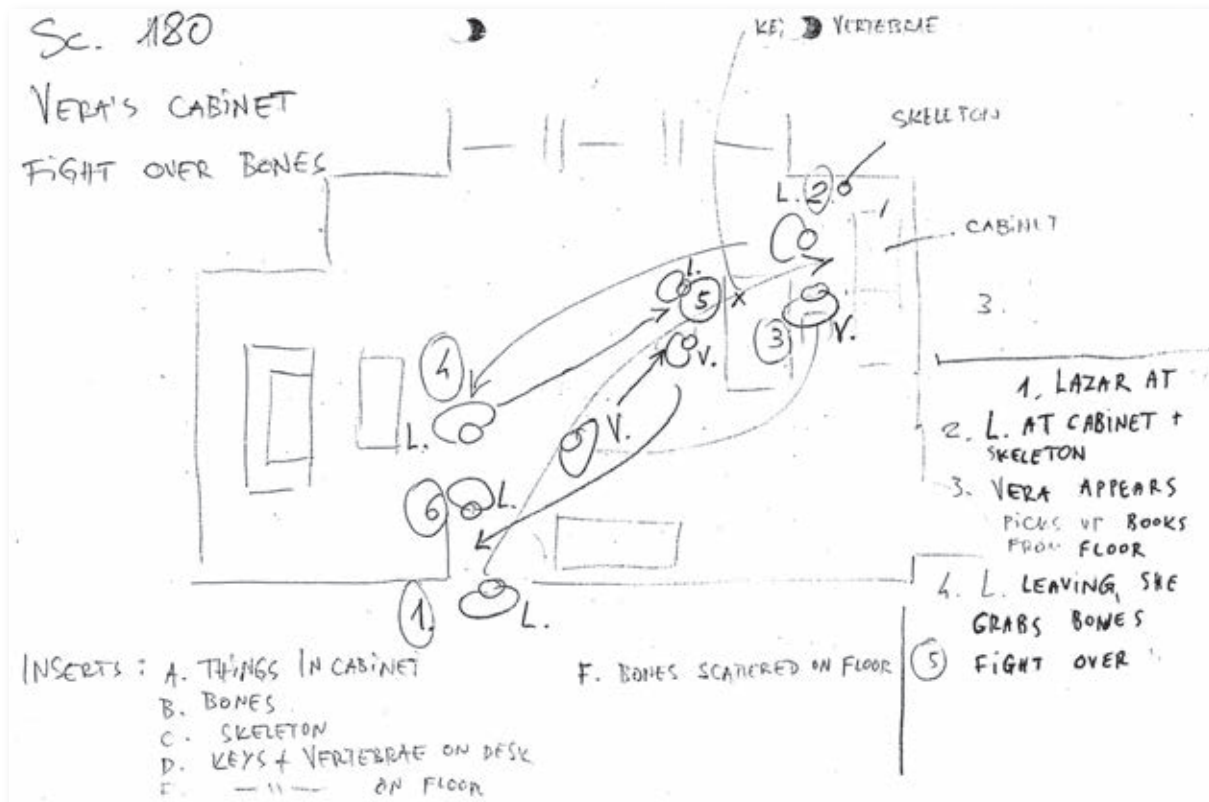 Sc. 180
VERA'S CABINET
FIGHT OVER BONES
KEY VERTEBRAE
SKELETON
CABINET
L. 2.
L.
5
X
3
V.
V.
4
L.
V.
6
L.
1.
L.
3.
1. LAZAR AT
2. L. AT CABINET +
SKELETON
3. VERA APPEARS
PICKS UP BOOKS
FROM FLOOR
4. L. LEAVING, SHE
GRABS BONES
5 FIGHT OVER "
INSERTS: A. THINGS IN CABINET
B. BONES
C. SKELETON
D. KEYS + VERTEBRAE ON DESK
E. —"— ON FLOOR
F. BONES SCATTERED ON FLOOR